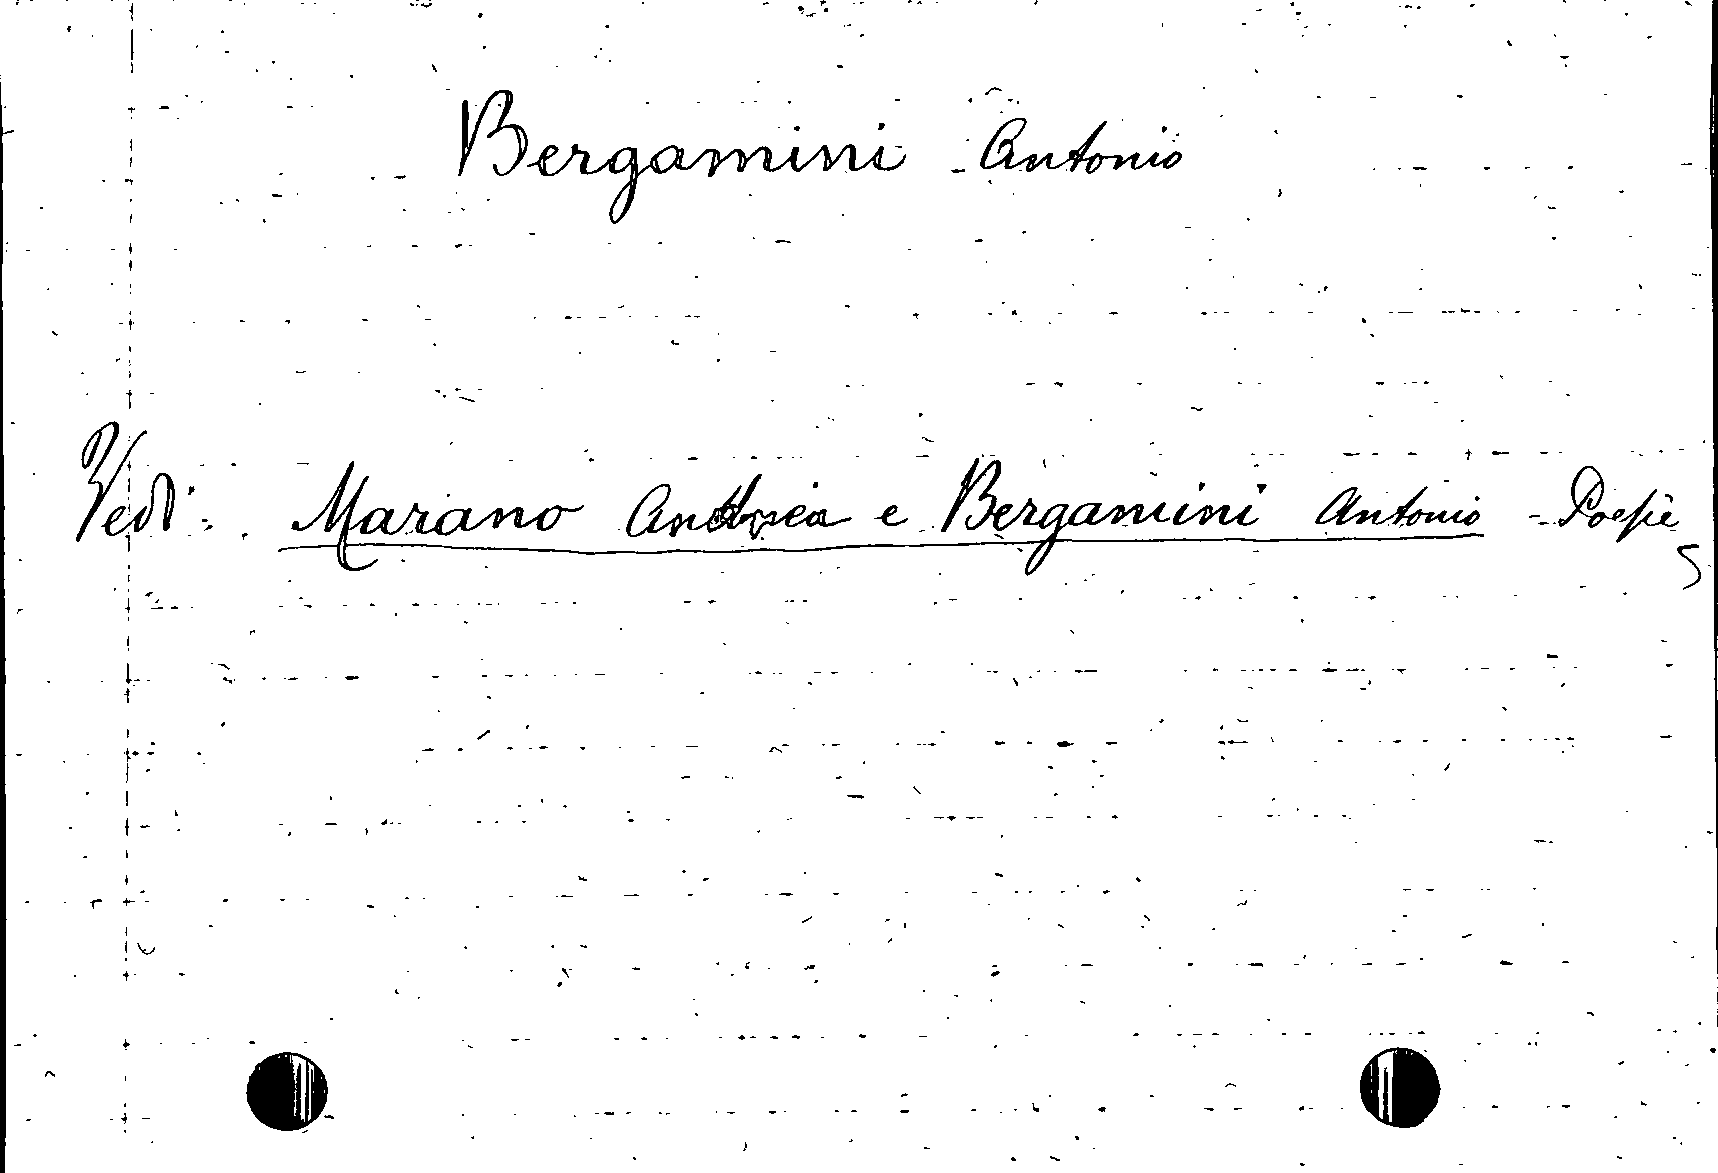 Bergamini Antonio
Vedi: Marano Andrea e Bergamini Antonio - Poesie